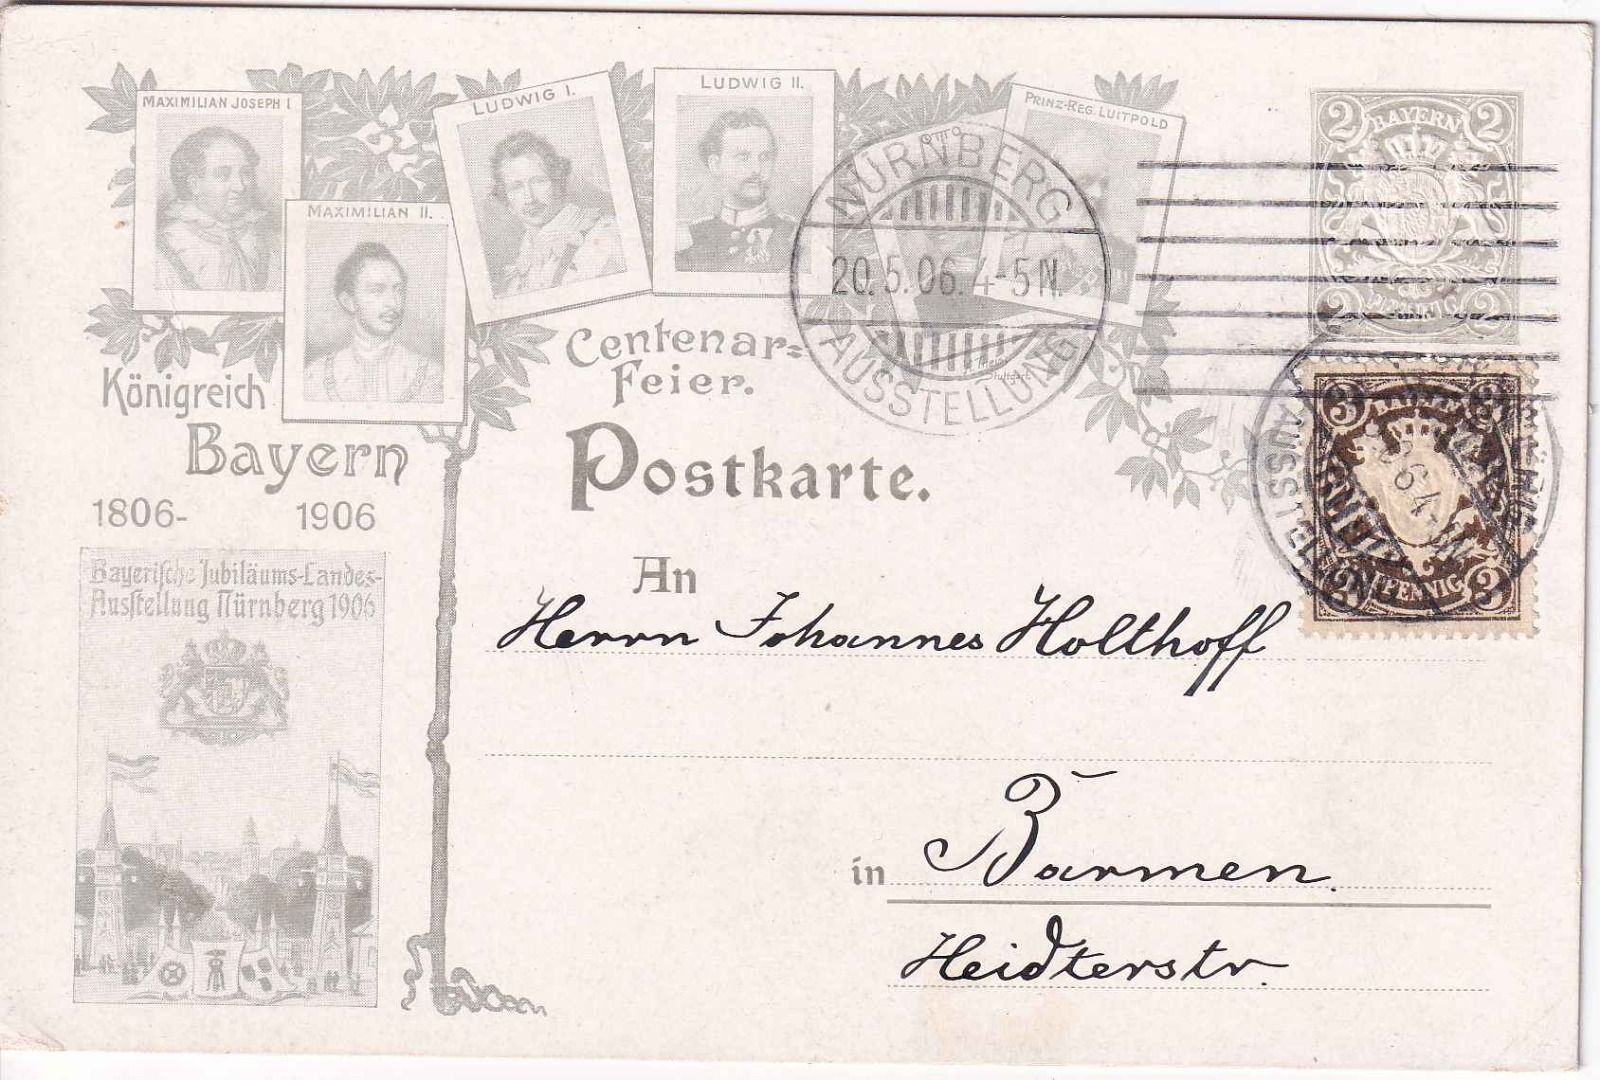 MAXIMILIAN JOSEPH I
MAXIMILIAN II.
LUDWIG I.
LUDWIG II.
OTTO
PRINZ-REG. LUITPOLD
Centenar=
Feier.
Königreich
Bayern
1806-
1906
Postkarte.
Bayerische Jubiläums-Landes-
Ausstellung Nürnberg 1906
An
Herrn Johannes Holthoff
in Barmen.
Heidterstr
NÜRNBERG
20.5.06. 4-5 N.
AUSSTELLUNG
2 BAYERN 2
2 PFENNIG 2
3 BAYERN
3 PFENNIG 3
Stuttgart